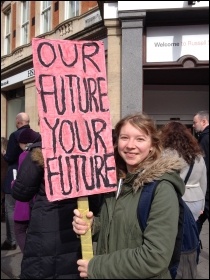 OUR
FUTURE
YOUR
FUTURE
Welcome to Russell